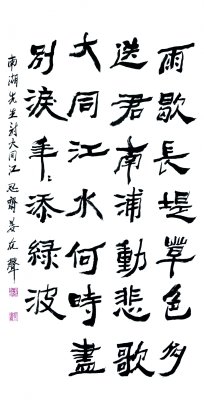 雨歇長堤草色多
送君南浦動悲歌
大同江水何時盡
別淚年々添綠波
南湖先生詩大同江